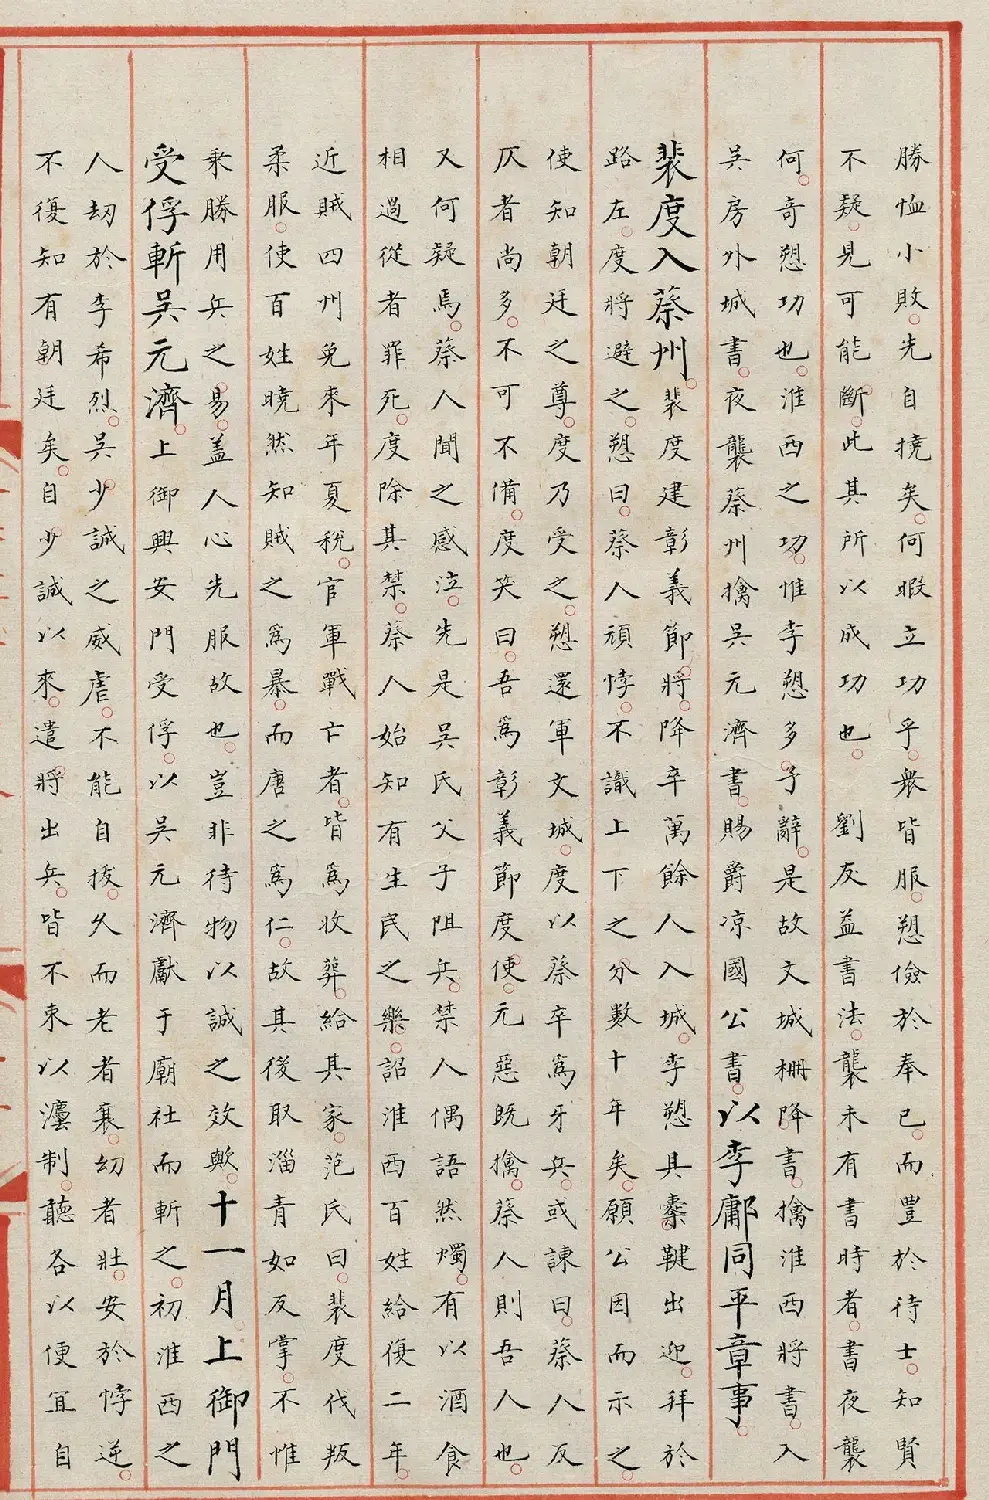 勝恤小敗。先自撓矣。何暇立功乎。衆皆服。愬儉於奉己。而豐於待士。知賢
不疑。見可能斷。此其所以成功也。　劉友益書法。襲未有書時者。書夜襲
何。奇愬功也。淮西之功。惟李愬多。予辭。是故文城柵降書。擒淮西將書。入
吳房外城書。夜襲蔡州擒吳元濟書。賜爵凉國公書。以李鄘同平章事。
裴度入蔡州。裴度建彰義節。將降卒萬餘人入城。李愬具櫜鞬出迎。拜於
路左。度將避之。愬曰。蔡人頑悖。不識上下之分數十年矣。願公因而示之。
使知朝廷之尊。度乃受之。愬還軍文城。度以蔡卒爲牙兵。或諫曰。蔡人反
仄者尚多。不可不備。度笑曰。吾爲彰義節度使。元惡既擒。蔡人則吾人也。
又何疑焉。蔡人聞之感泣。先是吳氏父子阻兵。禁人偶語然燭。有以酒食
相過從者罪死。度除其禁。蔡人始知有生民之樂。詔淮西百姓給復二年。
近賊四州免來年夏稅。官軍戰亡者。皆爲收葬。給其家。范氏曰。裴度伐叛
柔服。使百姓曉然知賊之爲暴。而唐之爲仁。故其後取淄青如反掌。不惟
乘勝用兵之易。蓋人心先服故也。豈非待物以誠之效歟。十一月。上御門
受俘斬吳元濟。上御興安門受俘。以吳元濟獻于廟社而斬之。初淮西之
人劫於李希烈。吳少誠之威虐。不能自拔。久而老者衰。幼者壯。安於悖逆。
不復知有朝廷矣。自少誠以來。遣將出兵。皆不束以灋制。聽各以便宜自